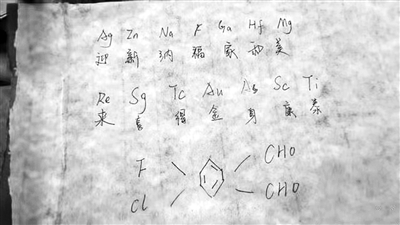 Ag Zn Na F Ga Hf Mg
迎 新 纳 福 家 美
Re Sg Tc Au As Sc Ti
来 喜 得 金 身 康 泰
F CHO
Cl CHO